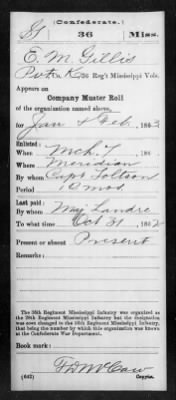 (Confederate.)
G 36 Miss.
E. M. Gillis
Pvt., Co. K, 36 Reg't Mississippi Vols.
Appears on
Company Muster Roll
of the organization named above,
for Jan & Feb, 1863
Enlisted:
When Mch. 7, 186
Where Meridian
By whom Capt.
Period 12 mos.
Last paid:
By whom Maj. Landre
To what time Oct 31, 1862
Present or absent Present
Remarks:
The 36th Regiment Mississippi Infantry was organized
as the Regiment Mississippi Infantry but the designation
was soon changed to the 36th Regiment Mississippi Infantry,
that being the number by which it was known on the records of
the Confederate War Department.
Book mark:
(642) Copyist.